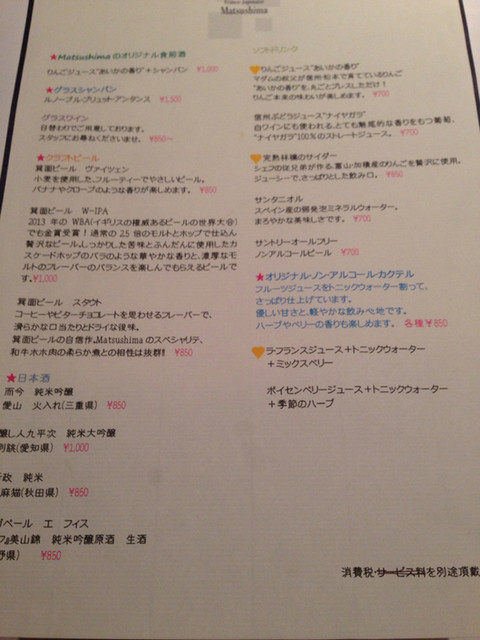 Matsushima
★Matsushima のオリジナル食前酒
りんごジュース"あいかの香り"+シャンパン ¥1,000
★グラスシャンパン
ルノーブル・ブリュットアンタンス ¥1,500
グラスワイン
日替わりでご用意しております。
スタッフにお尋ねくださいませ。 ¥850～
★クラフトビール
箕面ビール ヴァイツェン
小麦を使用した、フルーティーでやさしいビール。
バナナやクローブのような香りが楽しめます。 ¥850
箕面ビール W-IPA
2013 年の WBA(イギリスの権威あるビールの世界大会)
でも金賞受賞！通常の 2.5 倍のモルトとホップで仕込んだ
贅沢なビール。しっかりした苦味とふんだんに使用したカ
スケードホップのバラのような華やかな香りと、濃厚なモ
ルトのフレーバーのバランスを楽しんでもらえるビールで
す。¥1,000
箕面ビール スタウト
コーヒーやビターチョコレートを思わせるフレーバーで、
滑らかな口当たりとドライな後味。
箕面ビールの自信作。Matsushima のスペシャリテ、
和牛ホホ肉の柔らか煮との相性は抜群！ ¥850
★日本酒
而今 純米吟醸
愛山 火入れ(三重県) ¥850
醸し人九平次 純米大吟醸
別誂(愛知県) ¥1,000
政 純米
麻猫(秋田県) ¥850
ペール エ フィス
美山錦 純米吟醸原酒 生酒
野県) ¥850
ソフトドリンク
りんごジュース"あいかの香り"
マダムの叔父が信州・松本で育てているりんご
"あいかの香り"を、丸ごとプレスしただけ！
りんご本来の味わいが楽しめます。 ¥700
信州ぶどうジュース"ナイヤガラ"
白ワインにも使われる、とても魅惑的な香りをもつ葡萄、
"ナイヤガラ"100％のストレートジュース。 ¥700
完熟林檎のサイダー
シェフの従兄弟が作る、富山・加積産のりんごを贅沢に使用。
ジューシーで、さっぱりとした飲み口。 ¥850
サンタニオル
スペイン産の微発泡ミネラルウォーター。
まろやかな美味しさです。 ¥700
サントリーオールフリー
ノンアルコールビール ¥700
★オリジナル・ノン・アルコール・カクテル
フルーツジュースをトニックウォーター割って、
さっぱり仕上げています。
優しい甘さと、軽やかな飲み心地です。
ハーブやベリーの香りも楽しめます。 各種¥850
ラ・フランスジュース+トニックウォーター
+ミックスベリー
ボイセンベリージュース+トニックウォーター
+季節のハーブ
消費税・サービス料を別途頂戴